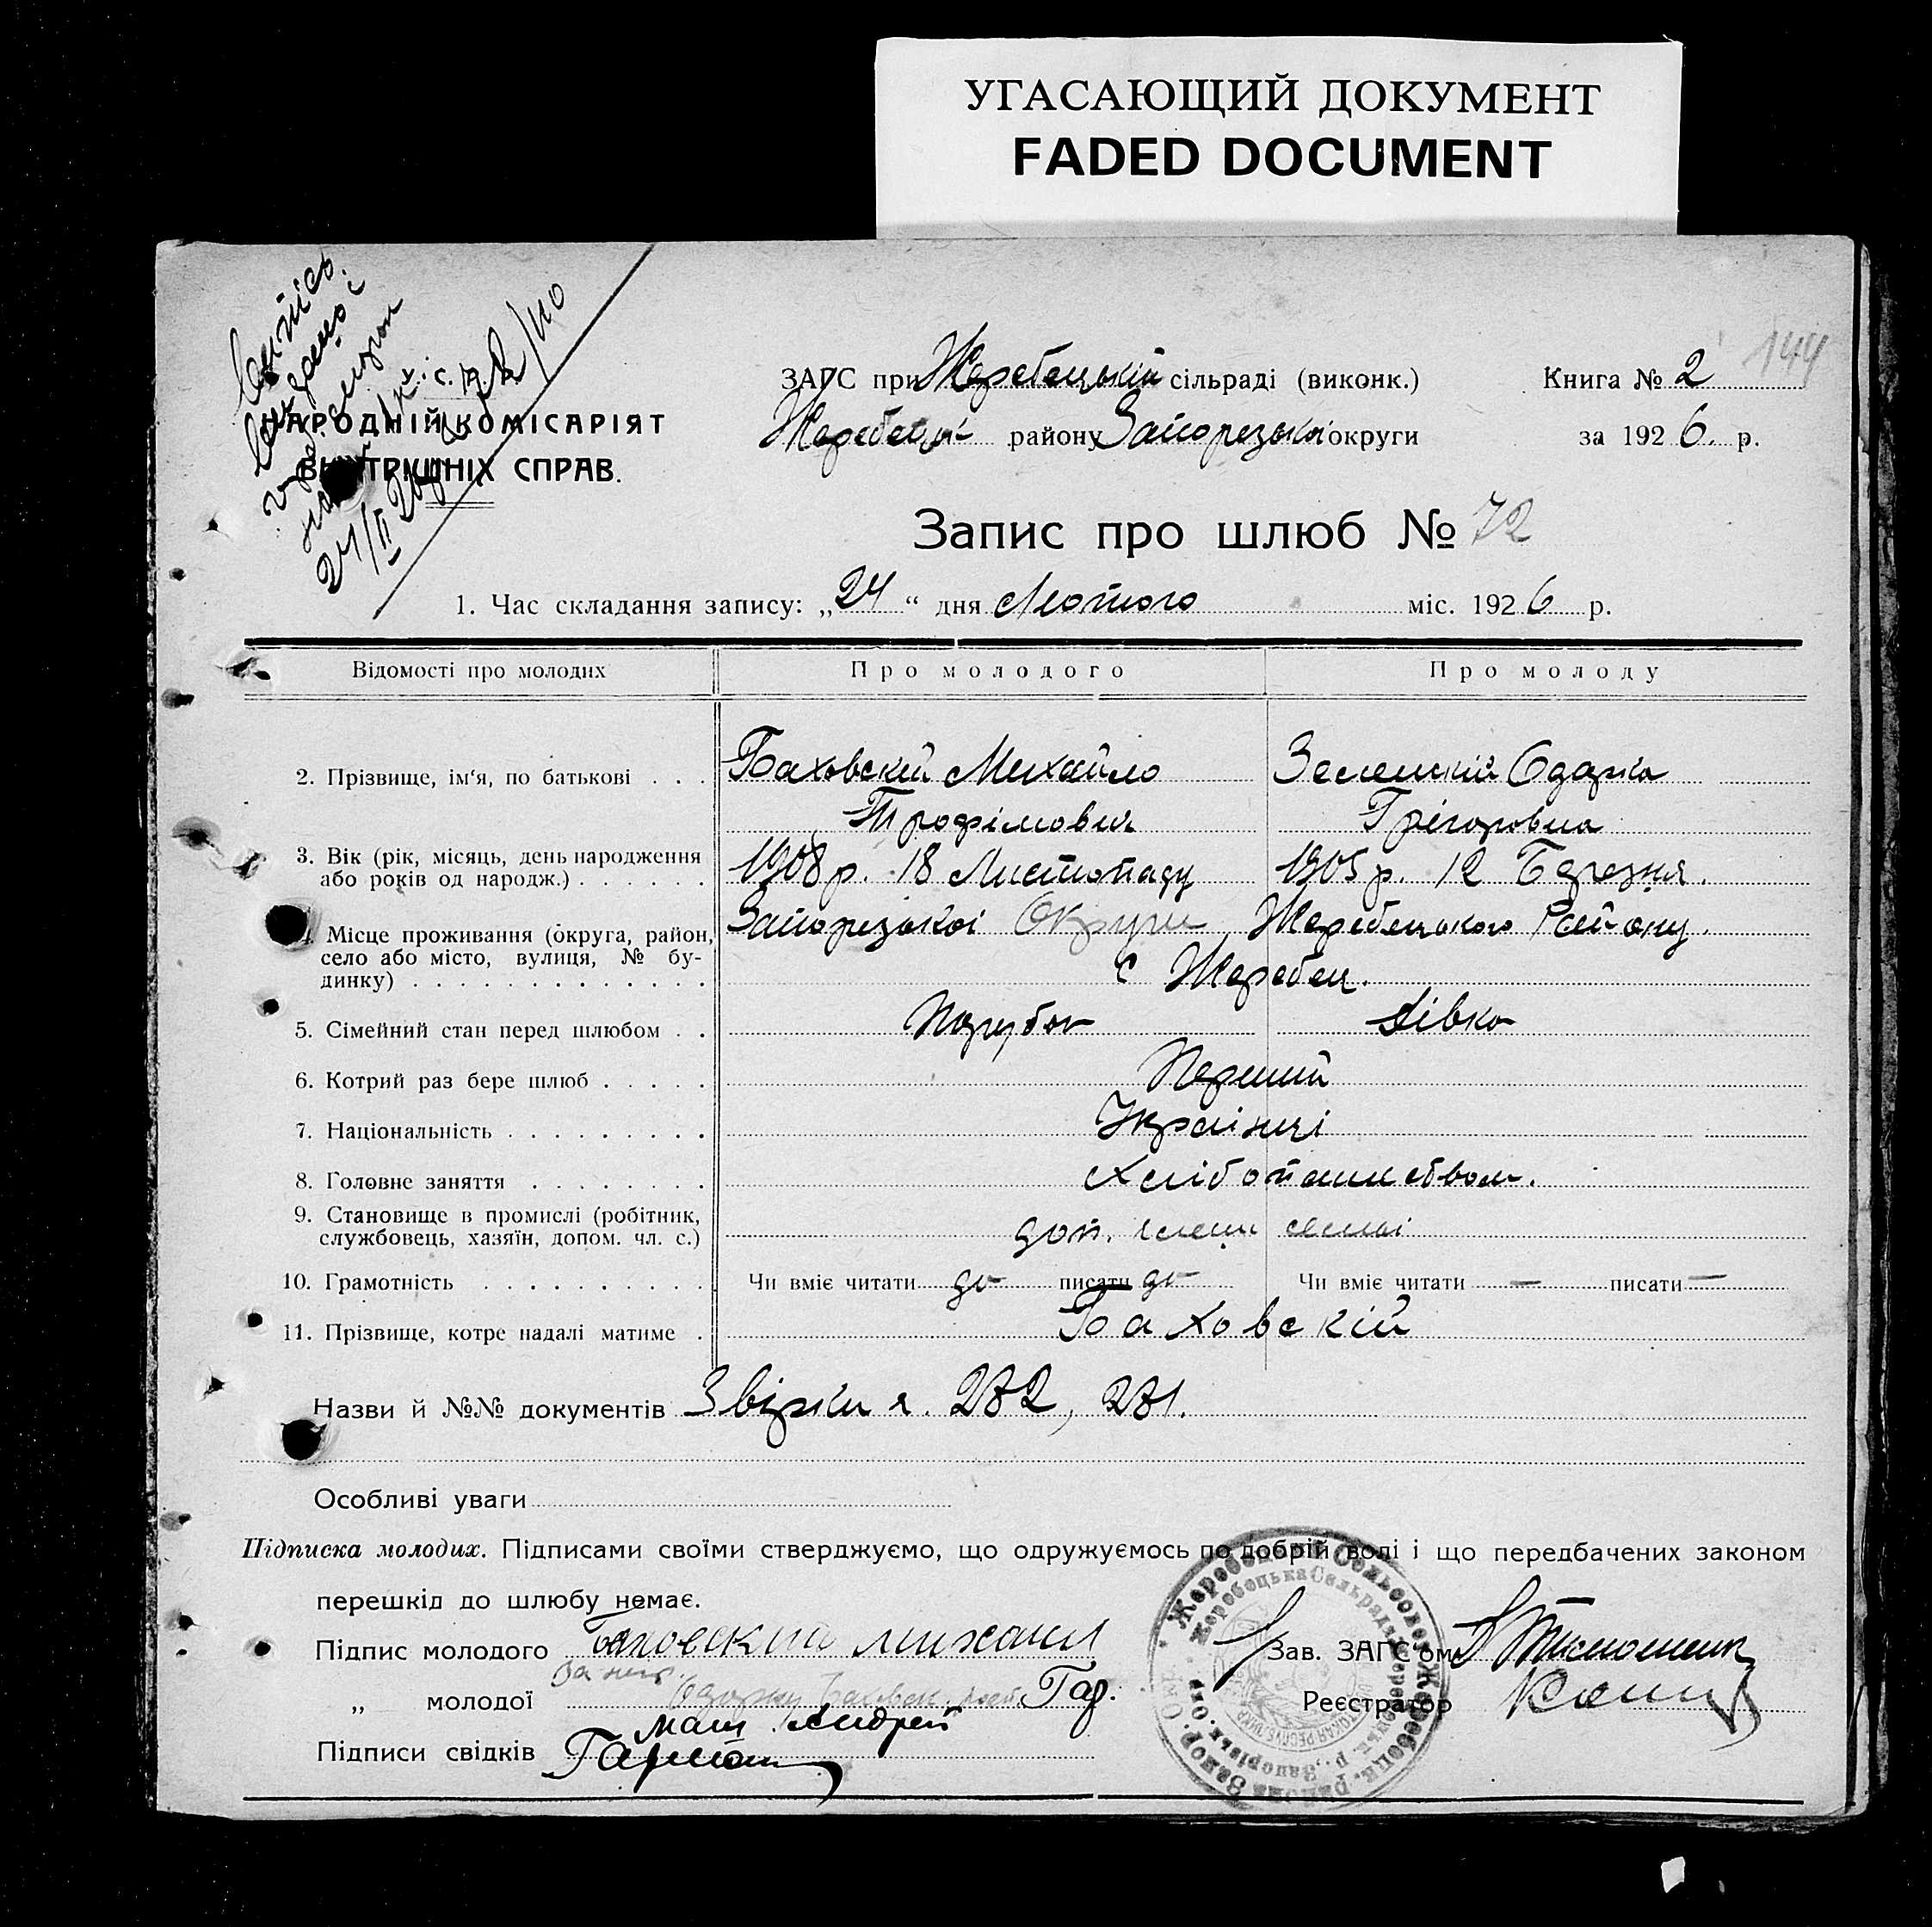 УГАСАЮЩИЙ ДОКУМЕНТ
FADED DOCUMENT
144
НАРОДНІЙ КОМІСАРІЯТ
ВНУТРІШНІХ СПРАВ.
ЗАГС при Жеребецькій сільраді (виконк.) Книга № 2
району Запорезької округи за 1926. р.
Запис про шлюб № 72
1. Час складання запису: „24“ дня Лютого міс. 1926 р.
Відомості про молодих Про молодого Про молоду
2. Прізвище, ім'я, по батькові . . . Баховскій Михайло Зеленскій Одарка
Трофімович Грігоровна
3. Вік (рік, місяць, день народження
або років од народж.) . . . . . . 1908 р. 18 Листопаду 1905 р. 12 Березня.
4. Місце проживання (округа, район, Запорезької Округи, Жеребецького Району.
село або місто, вулиця, № бу-
динку) . . . . . . . . . . . . . с Жеребец.
5. Сімейний стан перед шлюбом . . Парубок Дівка
6. Котрий раз бере шлюб . . . . . Перший
7. Національність . . . . . . . . . Українці
8. Головне заняття . . . . . . . . Хліборобством.
9. Становище в промислі (робітник,
службовець, хазяїн, допом. чл. с.) доп. члени семьі
10. Грамотність . . . . . . . . . . Чи вміє читати да писати да Чи вміє читати — писати —
11. Прізвище, котре надалі матиме . Баховскій
Назви й №№ документів Звірки 272, 271.
Особливі уваги
Підписка молодих. Підписами своїми стверджуємо, що одружуємось по добрій волі і що передбачених законом
перешкід до шлюбу немає.
Підпис молодого Баховский Михаил Зав. ЗАГС'ом
„ молодої Реєстратор
Андрей
Підписи свідків